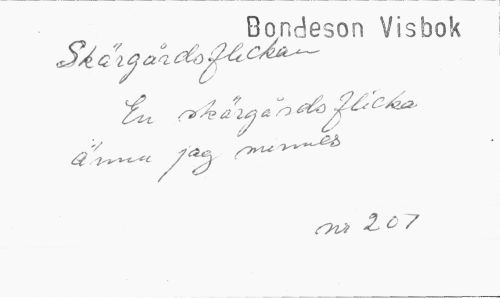 Bondeson Visbok
Skärgårdsflickan
En skärgårdsflicka
ännu jag minnes
nr 207